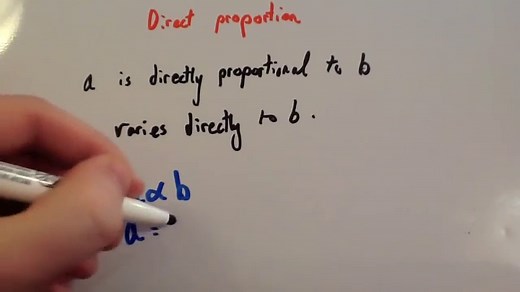 Direct proportion
a is directly proportional to b
varies directly to b.
∝ b
a =